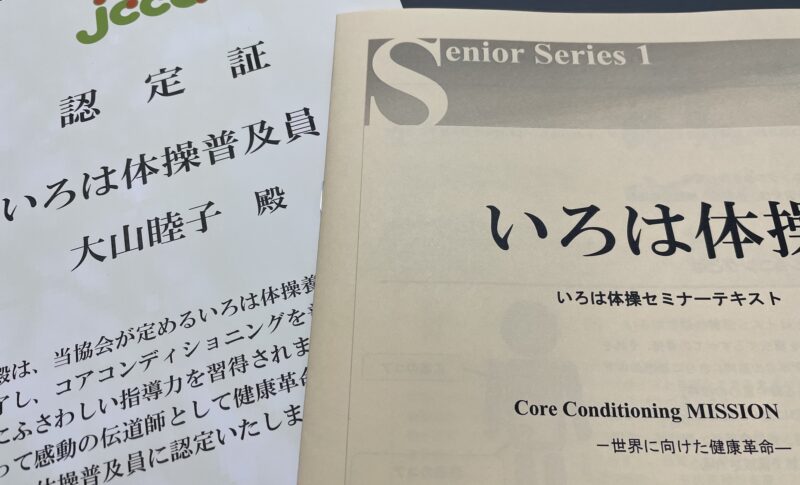 jcca
認定証
いろは体操普及員
大山睦子 殿
殿は、当協会が定めるいろは体操養
了し、コアコンディショニングを
にふさわしい指導力を習得されま
って感動の伝道師として健康革命
体操普及員に認定いたしま
Senior Series 1
いろは体操
いろは体操セミナーテキスト
Core Conditioning MISSION
－世界に向けた健康革命―